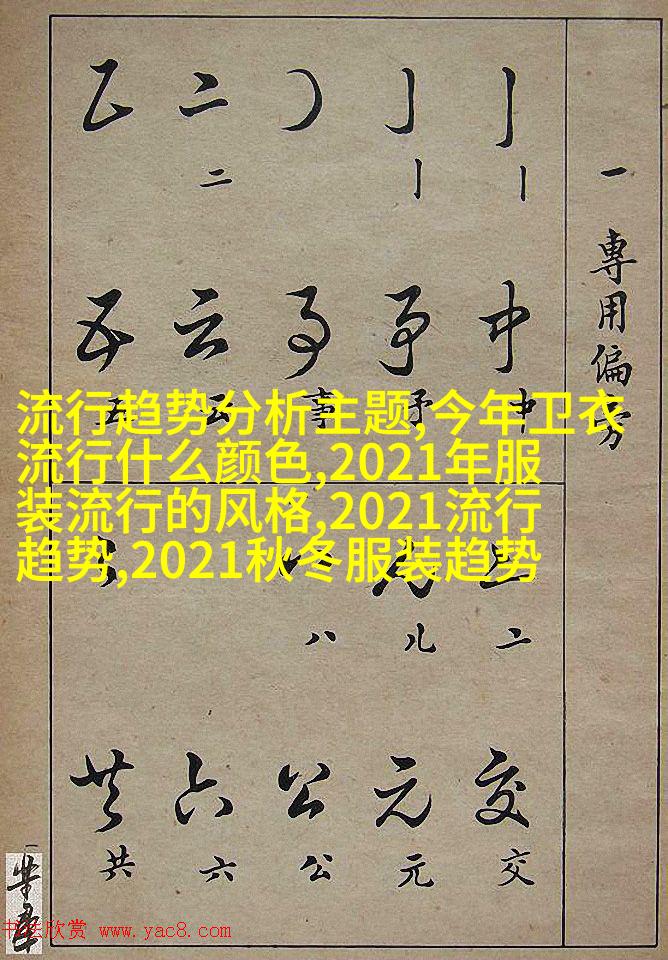 一 專用偏旁
丨 中 中
丨 予
事 事
二 二 云 云
五 五
流行趋势分析主题,今年卫衣
流行什么颜色,2021年服
装流行的风格,2021流行
趋势,2021秋冬服装趋势
二 交 交
儿 元 元
八 公 公
六 六
共 共
书法欣赏 www.yac8.com